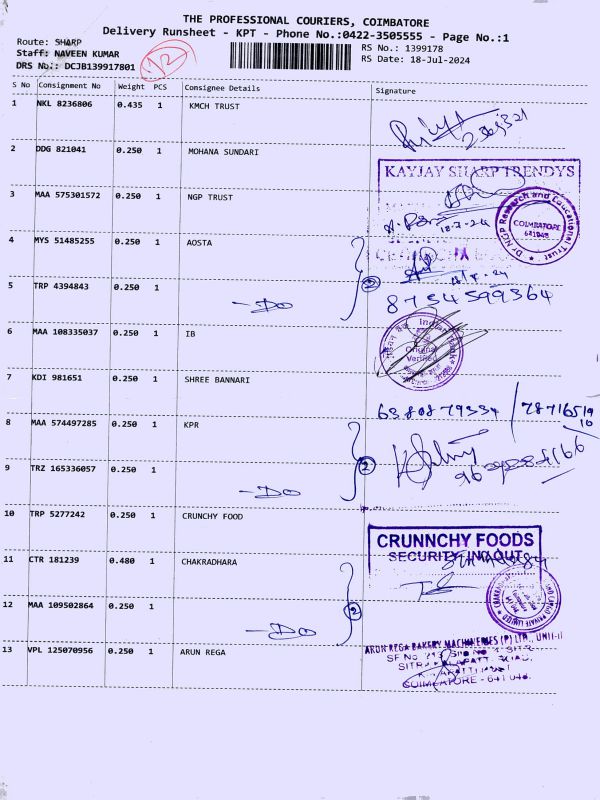 THE PROFESSIONAL COURIERS, COIMBATORE
Delivery Runsheet - KPT - Phone No.:0422-3505555 - Page No.:1
Route: SHARP
Staff: NAVEEN KUMAR
DRS No.: DCJB139917801
12
RS No.: 1399178
RS Date: 18-Jul-2024
S No Consignment No Weight PCS Consignee Details Signature
1 NKL 8236806 0.435 1 KMCH TRUST
2 DDG 821041 0.250 1 MOHANA SUNDARI
KAYJAY SHARP TRENDYS
3 MAA 575301572 0.250 1 NGP TRUST
18-7-24
Dr NGP Research and Educational Trust
COIMBATORE
641048
4 MYS 51485255 0.250 1 AOSTA
5 TRP 4394843 0.250 1
-Do
2
8754599364
6 MAA 108335037 0.250 1 IB
Indian Bank
Original
Verified
7 KDI 981651 0.250 1 SHREE BANNARI
6380879334
8 MAA 574497285 0.250 1 KPR
9 TRZ 165336057 0.250 1
-Do
2
10 TRP 5277242 0.250 1 CRUNCHY FOOD
CRUNNCHY FOODS
SECURITY IN/OUT
11 CTR 181239 0.480 1 CHAKRADHARA
12 MAA 109502864 0.250 1
-Do
2
13 VPL 125070956 0.250 1 ARUN REGA
ARUN REGA BAKERY MACHINERIES (P) LTD., UNIT-II
COIMBATORE - 641 048.